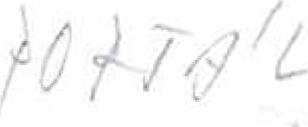 PORTÁL